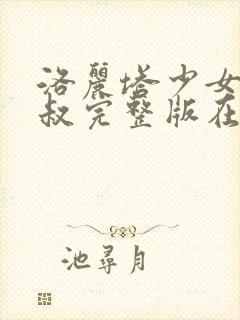 洛麗塔少女
叔完整版在
池尋月